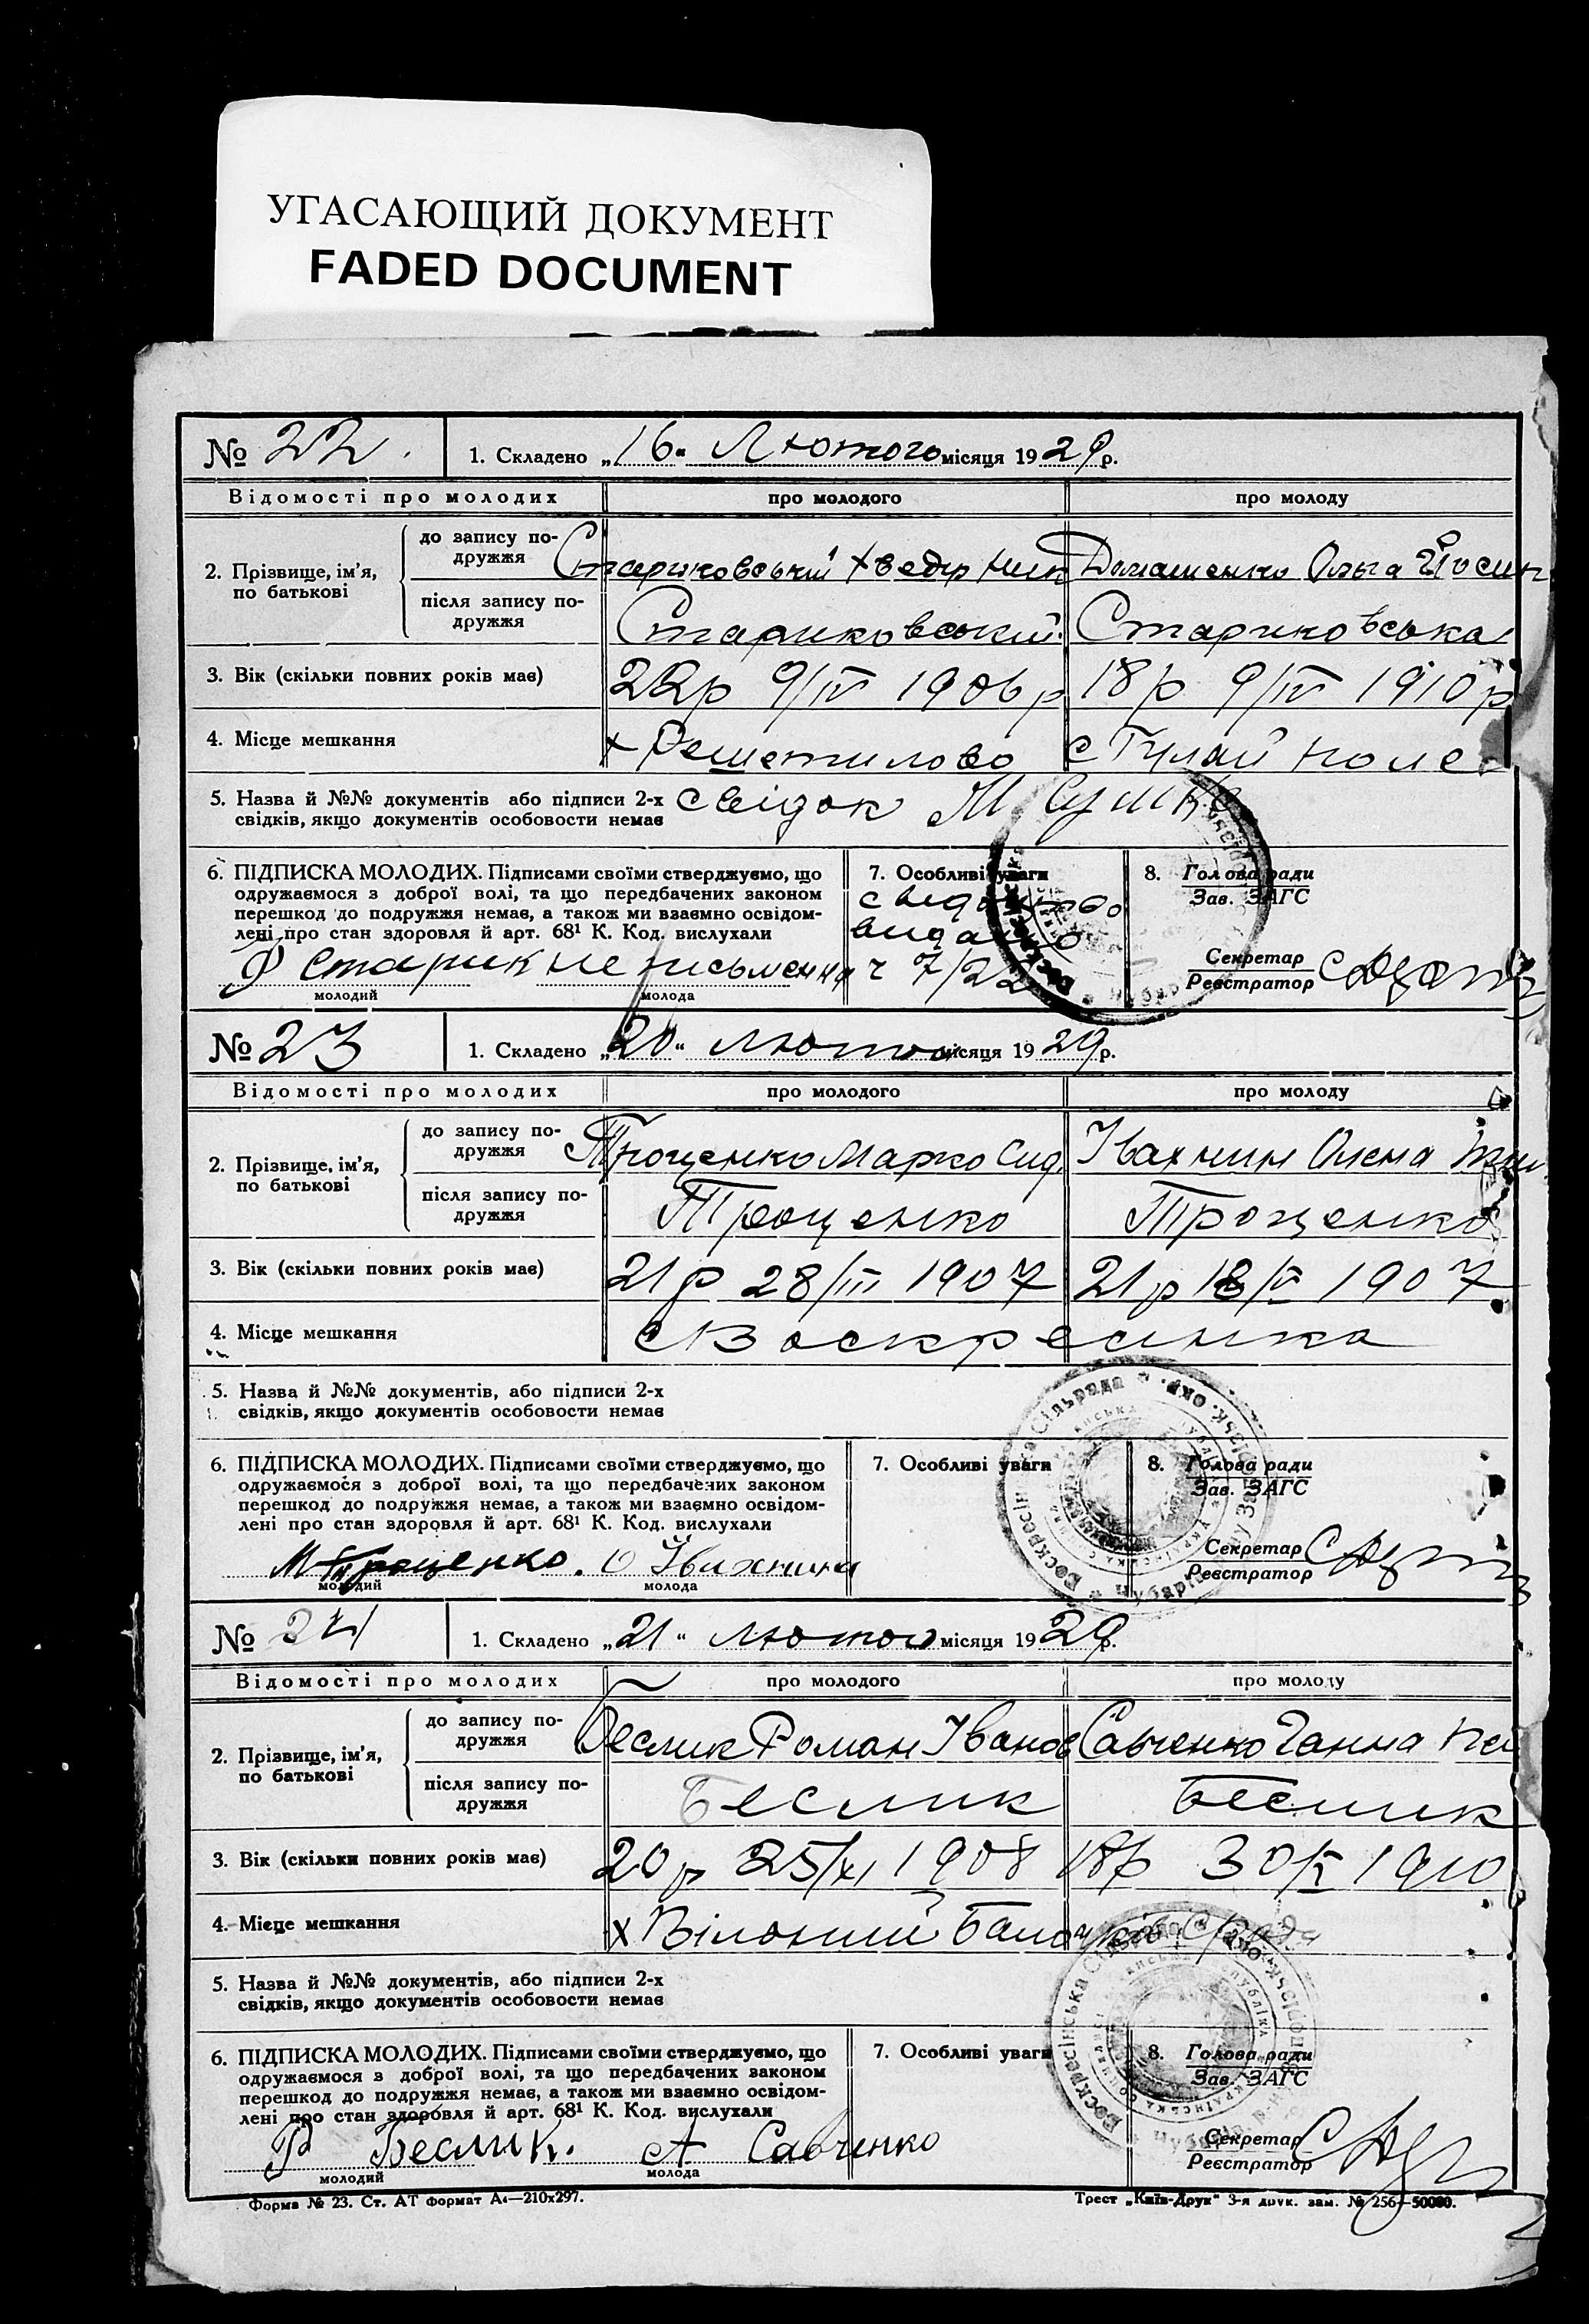 УГАСАЮЩИЙ ДОКУМЕНТ
FADED DOCUMENT
№ 22. 1. Складено „16“ Лютого місяця 1929 р.
Відомості про молодих про молодого про молоду
2. Прізвище, ім’я, по батькові
до запису подружжя Стариковський Хведір Ник Домашенко Ольга Йосип
після запису подружжя Стариковський Стариковська
3. Вік (скільки повних років має) 22р 9/IV 1906 р 18 р 9/IV 1910 р
4. Місце мешкання х Решетилово с Гуляй поле
5. Назва й №№ документів або підписи 2-х свідок М
свідків, якщо документів особовости немає
6. ПІДПИСКА МОЛОДИХ. Підписами своїми стверджуємо, що
одружаємося з доброї волі, та що передбачених законом
перешкод до подружжя немає, а також ми взаємно освідом-
лені про стан здоровля й арт. 68¹ К. Код. вислухали
Ф Старик неписьменна
молодий молода
7. Особливі уваги
видано
ч 7/22
8. Голова ради
Зав. ЗАГС
Секретар
Реєстратор
№ 23 1. Складено „20“ лютого місяця 1929 р.
Відомості про молодих про молодого про молоду
2. Прізвище, ім’я, по батькові
до запису подружжя Троценко Марко Сид. Івахнин Олена
після запису подружжя Троценко Троценко
3. Вік (скільки повних років має) 21 р 28/III 1907 21 р 18/V 1907
4. Місце мешкання с Воскресинка
5. Назва й №№ документів, або підписи 2-х
свідків, якщо документів особовости немає
6. ПІДПИСКА МОЛОДИХ. Підписами своїми стверджуємо, що
одружаємося з доброї волі, та що передбачених законом
перешкод до подружжя немає, а також ми взаємно освідом-
лені про стан здоровля й арт. 68¹ К. Код. вислухали
М Троценко. О Івахнина
молодий молода
7. Особливі уваги
8. Голова ради
Зав. ЗАГС
Секретар
Реєстратор
Воскресінська Сільрада
№ 24 1. Складено „21“ лютого місяця 1929 р.
Відомості про молодих про молодого про молоду
2. Прізвище, ім’я, по батькові
до запису подружжя Беслик Роман Іванов Савченко Ганна
після запису подружжя Беслик Беслик
3. Вік (скільки повних років має) 20 р 25/XI 1908 18р 30/X 1910
4. Місце мешкання х Вільний
5. Назва й №№ документів, або підписи 2-х
свідків, якщо документів особовости немає
6. ПІДПИСКА МОЛОДИХ. Підписами своїми стверджуємо, що
одружаємося з доброї волі, та що передбачених законом
перешкод до подружжя немає, а також ми взаємно освідом-
лені про стан здоровля й арт. 68¹ К. Код. вислухали
Р Беслик. А Савченко
молодий молода
7. Особливі уваги
8. Голова ради
Зав. ЗАГС
Секретар
Реєстратор
Воскресінська Сільрада
Форма № 23. Ст. АТ формат А₄—210х297. Трест „Київ-Друк“ 3-я друк. зам. № 256—50000.